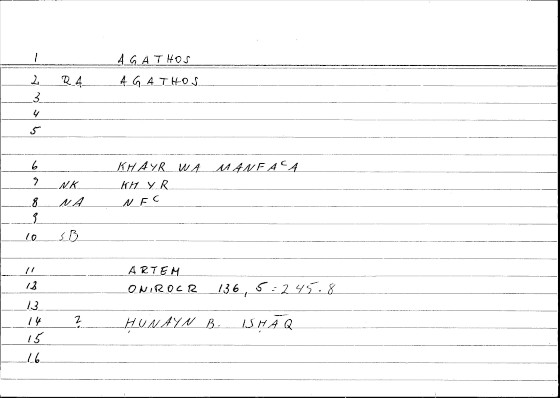 1 AGATHOS
2 RA AGATHOS
3
4
5
6 KHAYR WA MANFAᶜA
7 NK KHYR
8 NA NFᶜ
9
10 SB
11 ARTEM
12 ONIROCR 136, 5 = 245.8
13
14 ? ḤUNAYN B. ISḤĀQ
15
16